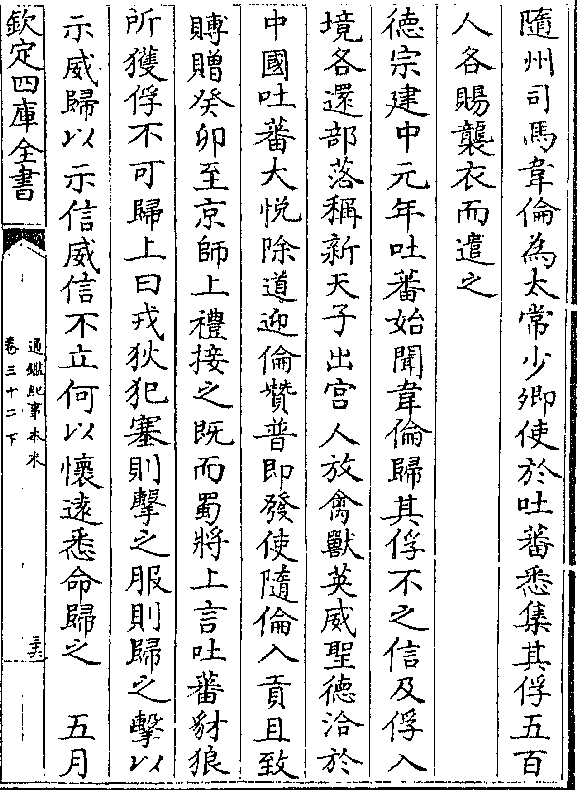 隨州司馬韋倫為太常少卿使於吐蕃悉集其俘五百
人各賜襲衣而遣之
德宗建中元年吐蕃始聞韋倫歸其俘不之信及俘入
境各還部落稱新天子出宫人放禽獸英威聖德洽於
中國吐蕃大悦除道迎倫贊普即發使隨倫入貢且致
賻贈癸卯至京師上禮接之既而蜀將上言吐蕃豺狼
所獲俘不可歸上曰戎狄犯塞則擊之服則歸之擊以
示威歸以示信威信不立何以懷逺悉命歸之　五月
欽定四庫全書
通鑑紀事本末
卷三十二下